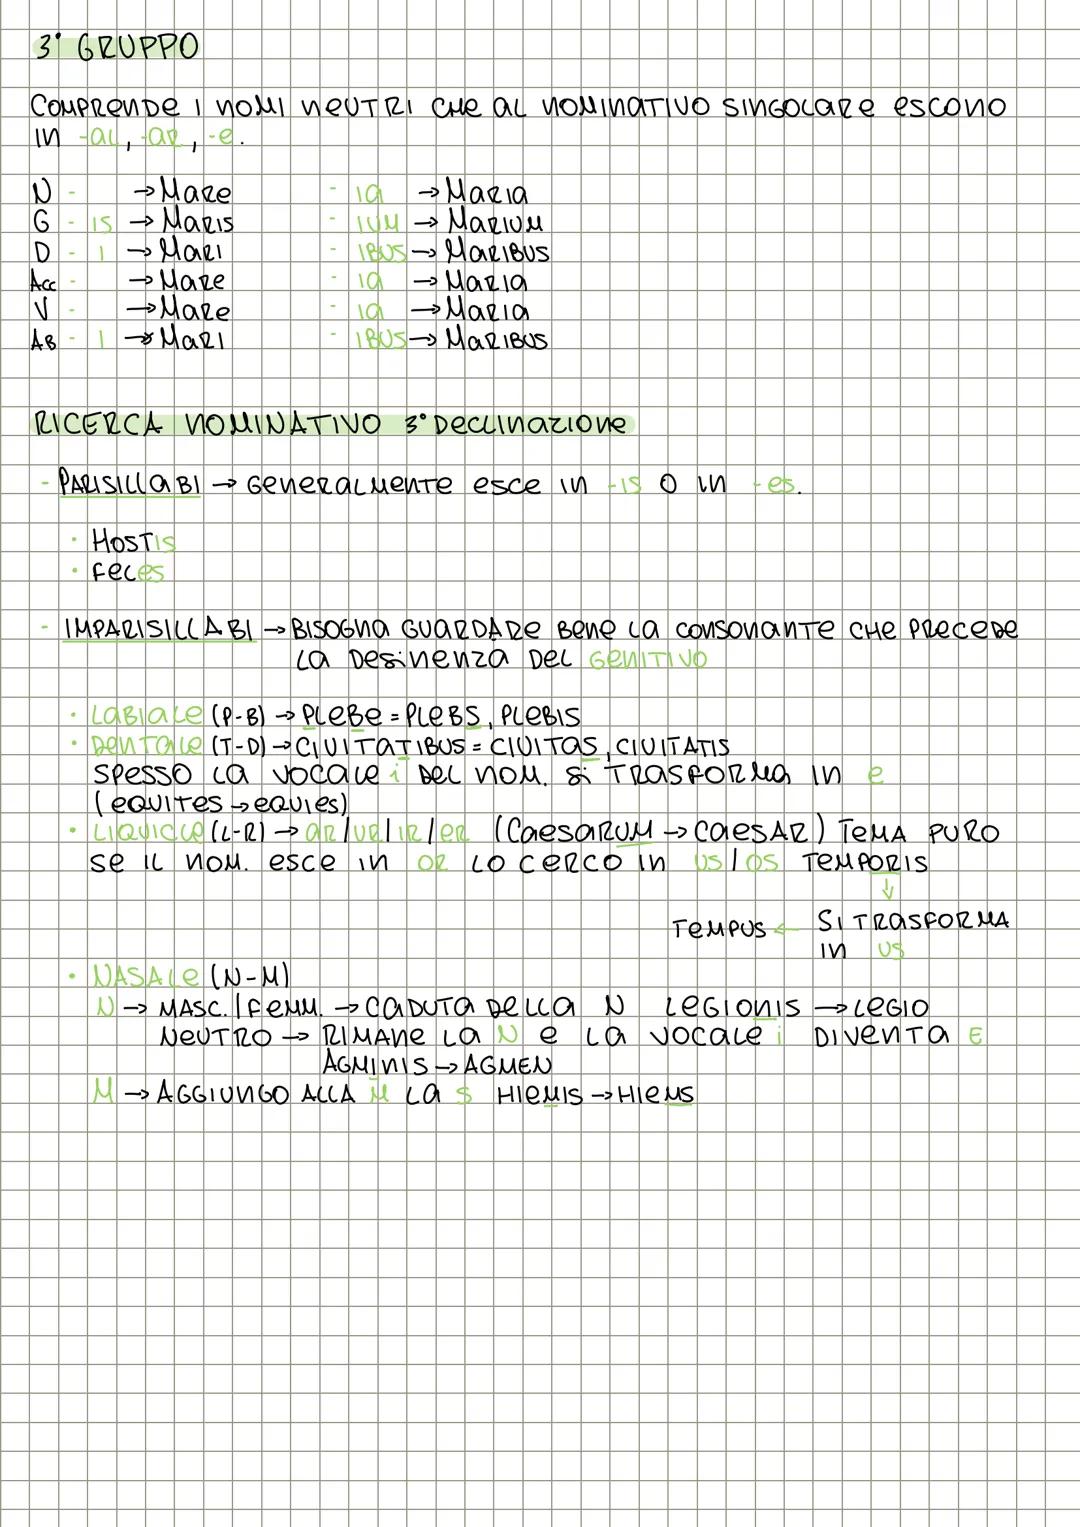 3° GRUPPO
COMPRENDE I NOMI NEUTRI CHE AL NOMINATIVO SINGOLARE ESCONO
IN -AL, -AR, -E.
N - → MARE - IA → MARIA
G - IS → MARIS - IUM → MARIUM
D - I → MARI - IBUS → MARIBUS
ACC - → MARE - IA → MARIA
V - → MARE - IA → MARIA
AB - I → MARI - IBUS → MARIBUS
RICERCA NOMINATIVO 3° DECLINAZIONE
- PARISILLABI → GENERALMENTE ESCE IN -IS O IN -ES.
• HOSTIS
• FECES
- IMPARISILLABI → BISOGNA GUARDARE BENE LA CONSONANTE CHE PRECEDE
LA DESINENZA DEL GENITIVO
• LABIALE (P-B) → PLEBE = PLEBS, PLEBIS
• DENTALE (T-D) → CIVITATIBUS = CIVITAS, CIVITATIS
SPESSO LA VOCALE i DEL NOM. SI TRASFORMA IN e
(EQUITES → EQUIES)
• (L-R) → AR/UR/IR/ER (CAESARUM → CAESAR) TEMA PURO
SE IL NOM. ESCE IN OR LO CERCO IN US/OS TEMPORIS
↓
TEMPUS ← SI TRASFORMA
IN US
• NASALE (N-M)
N → MASC./FEMM. → CADUTA DELLA N LEGIONIS → LEGIO
NEUTRO → RIMANE LA N E LA VOCALE i DIVENTA E
AGMINIS → AGMEN
M → AGGIUNGO ALLA M LA S HIEMIS → HIEMS